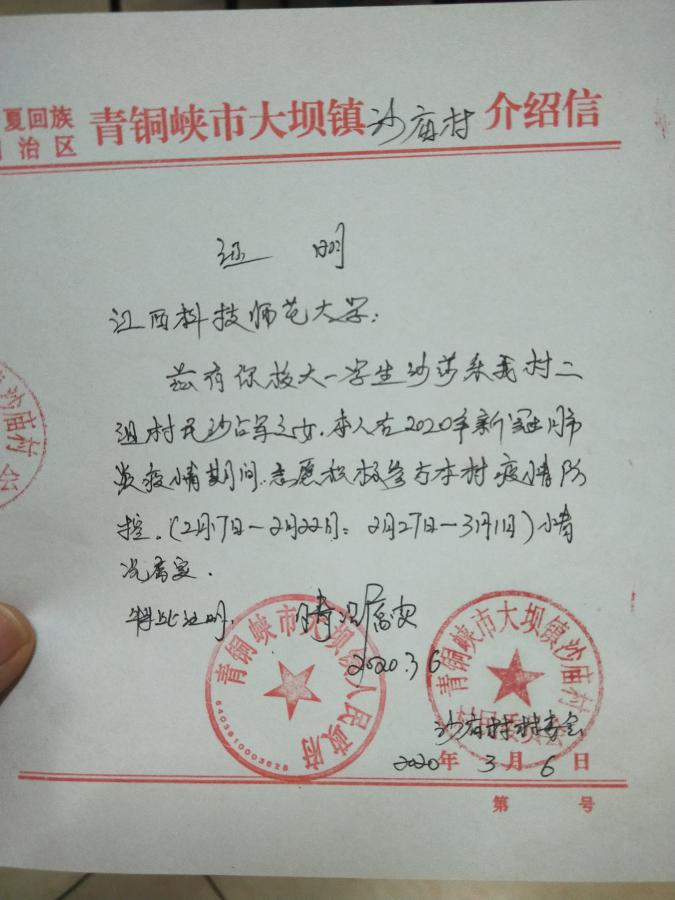 夏回族
治区
青铜峡市大坝镇沙庙村介绍信
证 明
江西科技师范大学:
兹有你校大一学生沙莎系我村二
组村民沙占军之女,本人在2020年新冠肺
炎疫情期间,志愿积极参与本村疫情防
控。(2月7日-2月22日; 2月27日-3月1日)情
况属实.
特此证明.
情况属实
2020.3 6
青铜峡市大坝镇人民政府
6403810003628
青铜峡市大坝镇沙庙村
沙庙村村委会
2020年 3 月 6 日
第 号
沙庙村